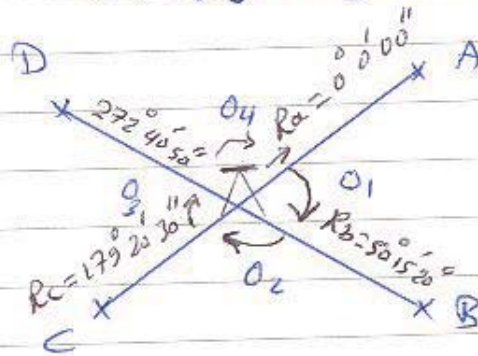 D
A
272° 40' 50"
O4
Ra = 0° 0' 00"
O3
O1
Rc = 179° 20' 30"
Rb = 50° 15' 20"
O2
C
B